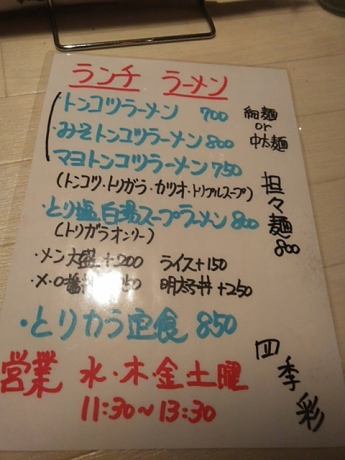 ランチ ラーメン
・トンコツラーメン 700
・みそトンコツラーメン 800
マヨトンコツラーメン 750
(トンコツ・トリガラ・カツオ・トリプルスープ)
・とり塩白湯スープラーメン 800
(トリガラオンリー)
・メン大盛 +200 ライス +150
明太子丼 +250
・とりカラ定食 850
細麺
or
中太麺
担々麺
800
営業 水・木・金土曜
11:30～13:30
四季彩